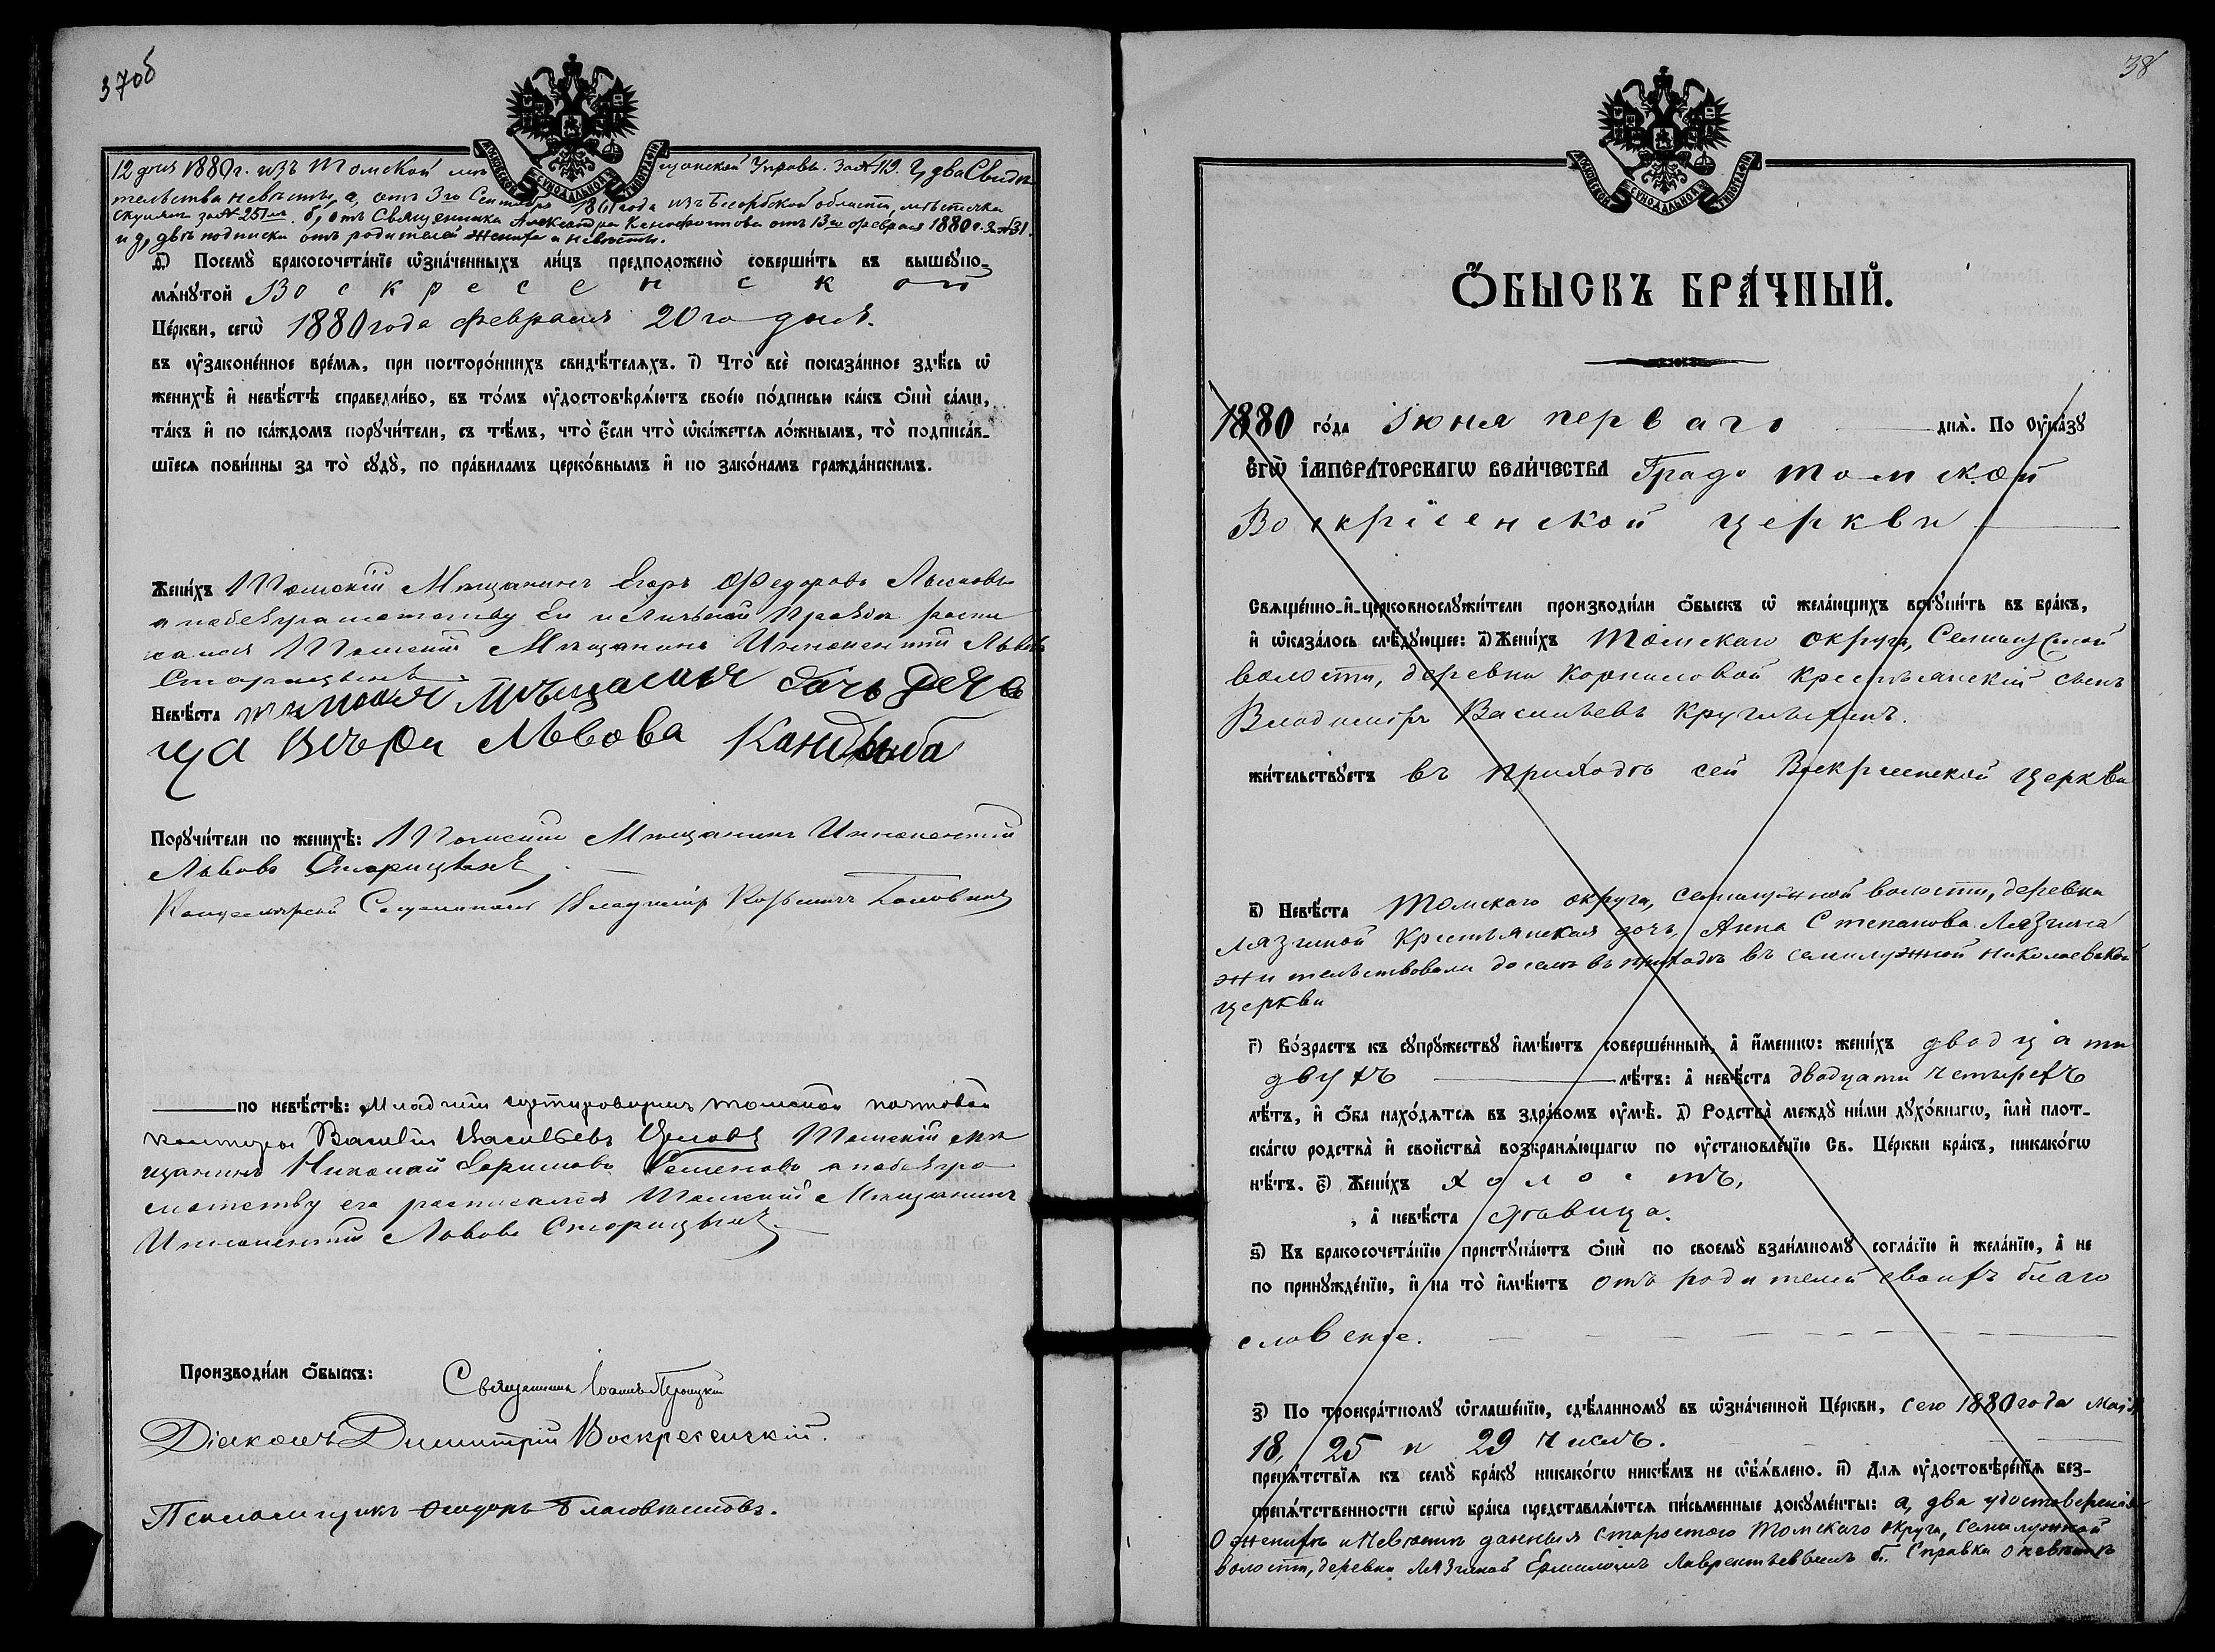 37об
12 дня 1880 г. изъ Томской мѣщанской Управы. за № 119. Ц два Свидѣ
тельства невѣсты, а, отъ 3го Сентября 1861 года изъ области, мѣстечка
за № 251м. б, отъ Священника Александра Ксенофонтова отъ 13го февраля 1880 г. за № 31.
и д, двѣ подписки отъ родителей жениха и невѣсты.
Посемꙋ бракосочета́нїе ѡ҆зна́ченныхъ ли́цъ предположено̀ соверши́ть въ вышеꙋпо-
мѧ́нꙋтой Воскресенской
Це́ркви, сегѡ̀ 1880 года февраля 20го дня.
въ ᲂу҆законе́нное вре́мѧ, при посторо́ннихъ свидѣ́телѧхъ. і҃) Что̀ всѐ пока́занное здѣ́сь ѡ҆
женихѣ̀ и҆ невѣ́стѣ справедли́во, въ то́мъ ᲂу҆достовѣрѧ́ютъ свое́ю по́дписью ка́къ ѻ҆нѝ са́ми,
та́къ и҆ по ка́ждомъ порꙋчи́тели, съ тѣ́мъ, что̀ є҆́сли что̀ ѡ҆ка́жетсѧ ло́жнымъ, то̀ подписа́в-
шїесѧ пови́нны за то̀ сꙋдꙋ̀, по пра́виламъ церко́внымъ и҆ по зако́намъ гражда́нскимъ.
Жени́хъ Томскій Мѣщанинъ Егоръ Федоровъ
а по безграмотству его и личной прозьбѣ распи
сался Томскій Мѣщанинъ Иннокентій Львовъ
Старицынъ
Невѣ́ста томская Мѣщанская дочь деви
ца Вѣра Львова Кандыба
Порꙋчи́тели по женихѣ̀: Томскій Мѣщанинъ Иннокентій
Львовъ Старицынъ
Канцелярскій Служитель Владиміръ
по невѣ́стѣ: Младшій сортировщикъ томской почтовой
конторы Василій Васильевъ Томскій мѣ
щанинъ Николай а по безгра
мотству его расписался Томскій Мѣщанинъ
Иннокентій Львовъ Старицынъ
Производи́ли ѻ҆́быскъ: Священникъ Іоаннъ
Діаконъ Димитрій Воскресенскій.
Псаломщикъ Ѳеодоръ
38
ѺБЫСКЪ БРАЧНЫЙ.
1880 го́да Іюня перваго днѧ̀. По Оу҆ка́зꙋ
Є҆гѡ̀ И҆МПЕРАТОРСКАГѠ ВЕЛИЧЕСТВА Градо Томской
Воскресенской церкви
Свѧще́нно-и҆-церковнослꙋжи́тели производи́ли ѻ҆́быскъ ѡ҆ жела́ющихъ встꙋпи́ть въ бра́къ,
и҆ ѡ҆каза́лось слѣ́дꙋющее: а҃) Жени́хъ Томскаго округа, Семилужной
волости, деревни Корниловой крестьянскій сынъ
Владиміръ Васильевъ
жи́тельствꙋетъ въ приходѣ сей Воскресенской церкви
в҃) Невѣ́ста Томскаго округа, семилужной волости, деревни
Лязгиной Крестьянская дочь, Анна Степанова Лязгина
жительствовали доселѣ въ приходѣ въ семилужной николаевской
церкви
г҃) Во́зрастъ къ сꙋпрꙋ́жествꙋ и҆мѣ́ютъ соверше́нный, а҆ и҆́менно: жени́хъ двадцати
двухъ лѣ́тъ: а҆ невѣ́ста двадцати четырехъ
лѣ́тъ, и҆ ѻ҆́ба нахо́дѧтсѧ въ здра́вомъ ᲂу҆мѣ̀. д҃) Родства̀ междꙋ̀ ни́ми дꙋхо́внагѡ, и҆лѝ плот-
ска́гѡ родства̀ и҆ сво́йства̀ возбранѧ́ющагѡ по ᲂу҆становле́нїю Св. Це́ркви бра́къ, никако́гѡ
нѣ́тъ. є҃) Жени́хъ холостъ,
, а҆ невѣ́ста дѣвица.
ѕ҃) Къ бракосочета́нїю пристꙋпа́ютъ ѻ҆нѝ по своемꙋ̀ взаи́мномꙋ согла́сїю и҆ жела́нїю, а҆ не
по принꙋжде́нїю, и҆ на то̀ и҆мѣ́ютъ отъ родителей своихъ благо
словеніе.
з҃) По троекра́тномꙋ ѡ҆глаше́нїю, сдѣ́ланномꙋ въ ѡ҆зна́ченной Це́ркви, сего 1880 года Мая
18, 25 и 29 числъ.
препѧ́тствїѧ къ семꙋ̀ бра́кꙋ никако́гѡ никѣ́мъ не ѡ҆б̾ѧ́влено. и҃) Длѧ ᲂу҆достовѣре́нїѧ без-
препѧ́тственности сегѡ̀ бра́ка представлѧ́ютсѧ пи́сьменные докꙋме́нты: а, два удостоверенія
О женихѣ и Невѣстѣ данныя старостою Томскаго округа, Семилужной
волости, деревни Лязгиной Ермиломъ Лаврентьевымъ б. Справка о невѣстѣ